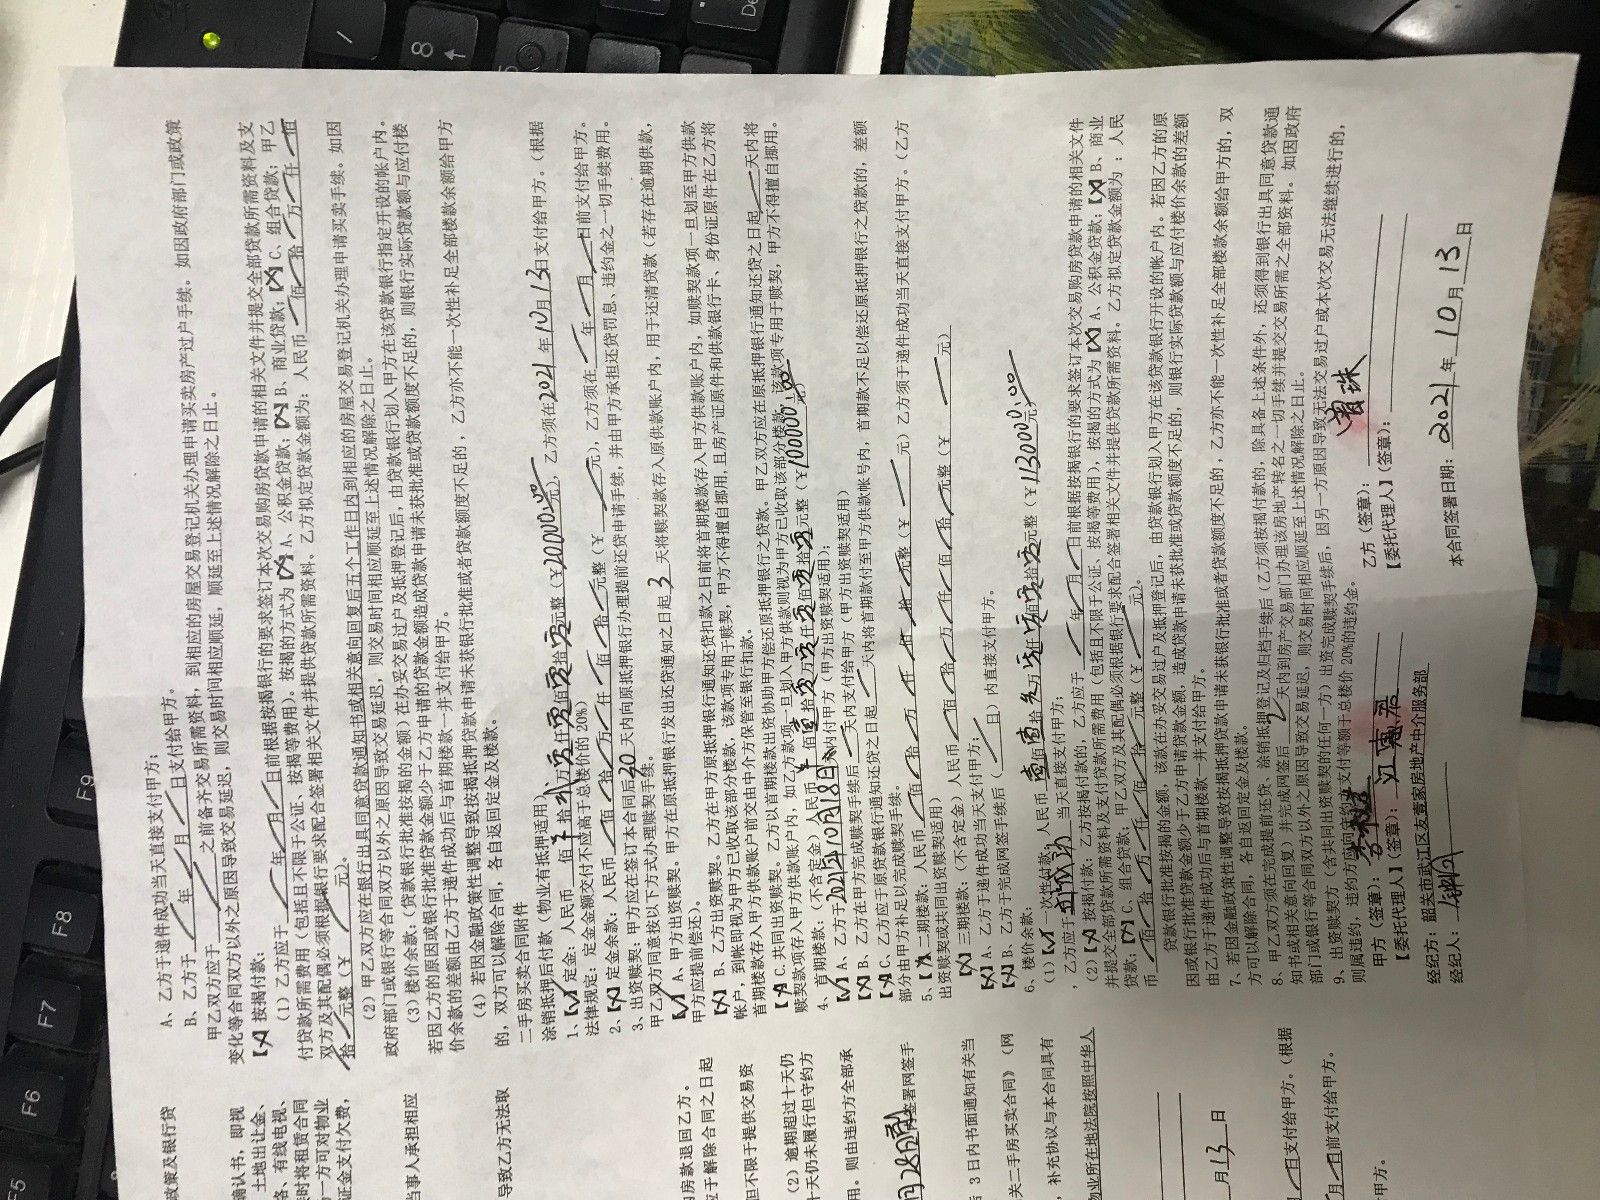 A、乙方于递件成功当天直接支付甲方；
B、乙方于 年 月 日支付给甲方。
甲乙双方应于 之前备齐交易所需资料，到相应的房屋交易登记机关办理申请买卖房产过户手续。如因政府部门或政策
变化等合同双方以外之原因导致交易延迟，则交易时间相应顺延，顺延至上述情况解除之日止。
【 】按揭付款：
（1）乙方应于 年 月 日前根据按揭银行的要求签订本次交易购房贷款申请的相关文件并提交全部贷款所需资料及支
付贷款所需费用（包括且不限于公证、按揭等费用）。按揭的方式为【X】A、公积金贷款；【X】B、商业贷款；【X】C、组合贷款；甲乙
双方及其配偶必须根据银行要求配合签署相关文件并提供贷款所需资料。乙方拟定贷款金额为：人民币 佰 拾 万 仟 佰
拾 元整（￥ 元）。
（2）甲乙双方应在银行出具同意贷款通知书或相关意向回复后五个工作日内到相应的房屋交易登记机关办理申请买卖手续。如因
政府部门或银行等合同双方以外之原因导致交易延迟，则交易时间相应顺延至上述情况解除之日止。
（3）楼价余款：（贷款银行批准按揭的金额）在办妥交易过户及抵押登记后，由贷款银行划入甲方在该贷款银行指定开设的帐户内。
若因乙方的原因或银行批准贷款金额少于乙方申请的贷款金额造成贷款申请未获银行批准或贷款额度不足的，则银行实际贷款额与应付楼
价余款的差额由乙方于递件成功后与首期楼款一并支付给甲方。
（4）若因金融政策性调整导致按揭抵押贷款申请未获银行批准或者贷款额度不足的，乙方亦不能一次性补足全部楼款余额给甲方
的，双方可以解除合同，各自返回定金及楼款。
二手房买卖合同附件
涂销抵押后付款（物业有抵押适用）
1、【√】定金：人民币 佰 拾贰万零仟零佰零拾零元整（￥20000.00元），乙方须在2021年10月13日支付给甲方。（根据
法律规定：定金金额交付不应高于总楼价的20%）
2、【X】定金余款：人民币 佰 拾 万 仟 佰 拾 元整（￥ 元），乙方须在 年 月 日前支付给甲方。
3、出资赎契：甲方应在签订本合同后20天内向原抵押银行办理提前还贷申请手续，并由甲方承担还贷罚息、违约金之一切手续费用。
甲乙双方同意按以下方式办理赎契手续。
【√】A、甲方出资赎契。甲方在原抵押银行发出还贷通知之日起3天将赎契款存入原供款账户内，用于还清贷款（若存在逾期供款，
甲方应提前偿还）。
【X】B、乙方出资赎契。乙方在甲方原抵押银行通知还贷扣款之日前将首期楼款存入甲方供款账户内，如赎契款项一旦划至甲方供款
帐户，到帐即视为甲方已收取该部分楼款，该款项专用于赎契，甲方不得擅自挪用，且房产证原件和供款银行卡、身份证原件在乙方将
首期楼款存入甲方供款账户前交由中介方保管至银行扣款。
【X】C.共同出资赎契。乙方以首期楼款出资协助甲方偿还原抵押银行之贷款。甲乙双方应在原抵押银行通知还贷之日起 天内将
赎契款项存入甲方供款账户内，如乙方款项一旦划入甲方供款则视为甲方已收取该部分楼款，该款项专用于赎契，甲方不得擅自挪用。
4、首期楼款：（不含定金）人民币 佰壹拾零万零仟零佰零拾零元整（￥100000.00元）
【√】A、乙方于2021年10月18日支付甲方（甲方出资赎契适用）；
【X】B、乙方在甲方完成赎契手续后 天内支付给甲方（甲方出资赎契适用）
【X】C、乙方应于原贷款银行通知还贷之日起 天内将首期款付至甲方供款帐号内，首期款不足以偿还原抵押银行之贷款的，差额
部分由甲方补足以完成赎契手续。
5、【X】二期楼款：人民币 佰 拾 万 仟 佰 拾 元整（￥ 元）乙方须于递件成功当天直接支付甲方。（乙方
出资赎契或共同出资赎契适用）
【X】三期楼款：（不含定金）人民币 佰 拾 万 仟 佰 拾 元整（￥ 元）
【X】A、乙方于递件成功当天支付甲方；
【X】B、乙方于完成网签手续后（ 日）内直接支付甲方。
6、楼价余款：
（1）【√】一次性付款：人民币壹佰壹拾叁万零仟零佰零拾零元整（￥1130000.00元）
，乙方应于过户成功当天直接支付甲方；
（2）【X】按揭付款：乙方按揭付款的，乙方应于 年 月 日前根据按揭银行的要求签订本次交易购房贷款申请的相关文件
并提交全部贷款所需资料及支付贷款所需费用（包括且不限于公证、按揭等费用），按揭的方式为【X】A、公积金贷款；【X】B、商业
贷款；【X】C、组合贷款；甲乙双方及其配偶必须根据银行要求配合签署相关文件并提供贷款所需资料。乙方拟定贷款金额为：人民
币 佰 拾 万 仟 佰 拾 元整（￥ 元）。
贷款银行批准按揭的金额，该款在办妥交易过户及抵押登记后，由贷款银行划入甲方在该贷款银行开设的帐户内。若因乙方的原
因或银行批准贷款金额少于乙方申请贷款金额，造成贷款申请未获银行批准或贷款额度不足的，则银行实际贷款额与应付楼价余款的差额
由乙方于递件成功后与首期楼款一并支付给甲方。
7、若因金融政策性调整导致按揭抵押贷款申请未获银行批准或者贷款额度不足的，乙方亦不能一次性补足全部楼款余额给甲方的，双
方可以解除合同，各自返回定金及楼款。
8、甲乙双方须在完成提前还贷、涂销抵押登记及归档手续后（乙方须按揭付款的，除具备上述条件外，还须得到银行出具同意贷款通
知书或相关意向回复）并完成网签后2天内到房产交易部门办理该房地产转名之一切手续并提交交易所需之全部资料。如因政府
部门或银行等合同双方以外之原因导致交易延迟，则交易时间相应顺延至上述情况解除之日止。
9、出资赎契方（含共同出资赎契的任何一方）出资完成赎契手续后，因另一方原因导致无法交易过户或本次交易无法继续进行的，
则属违约，违约方应向守约方支付等额于总楼价20%的违约金。
甲方（签章）： 乙方（签章）：
【委托代理人】（签章）： 【委托代理人】（签章）：
经纪方：韶关市武江区友壹家房地产中介服务部
经纪人： 本合同签署日期：2021年10月13日
政策及银行贷
确认书，即视
土地出让金、
络、有线电视、
时将租赁合同
一方可对物业
证金支付欠费，
当事人承担相应
导致乙方无法取
房款退回乙方。
于解除合同之日起
但不限于提供交易资
（2）逾期超过十天仍
十天仍未履行但守约方
用。则由违约方全部承
月28日前签署网签手
后 3 日内书面通知有关当
关二手房买卖合同》（网
，补充协议与本合同具有
物业所在地法院按照中华人
月13日
日支付给甲方。（根据
月 日前支付给甲方。
甲方。
F5
F6
F7
F8
F9
8